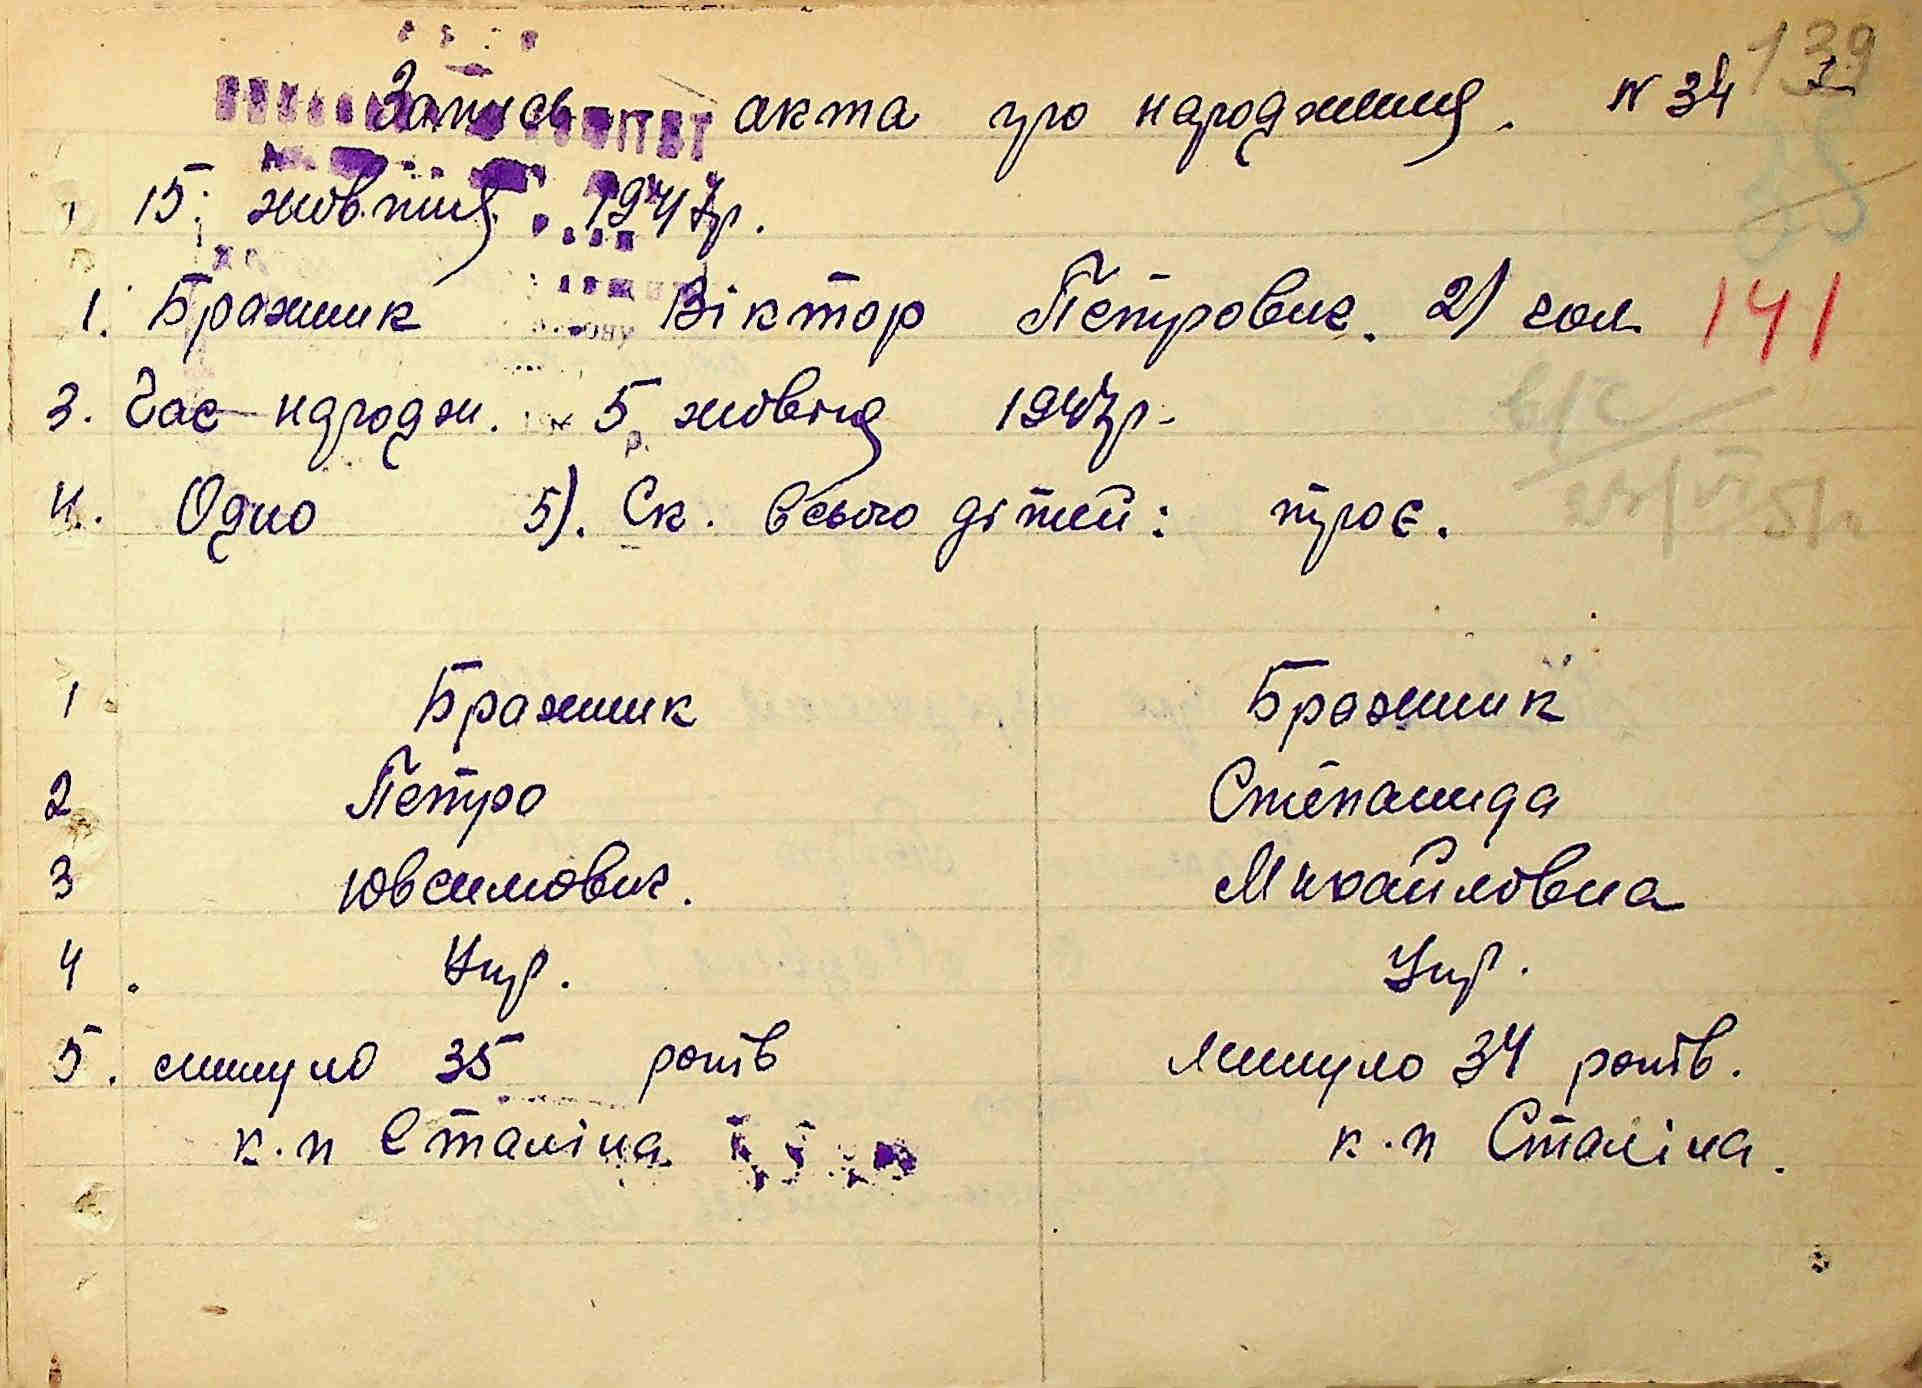 139
Запись акта про народження. N 34
38
15. жовтня. 1947р.
1. Бражник Віктор Петрович. 2) чол. 141
3. Час народж. 5 жовтня 1947р.
4. Одно 5). Ск. всього дітей: троє.
1 Бражник Бражник
2 Петро Степанида
3 Ювсимович. Михайловна
4. Укр. Укр.
5. минуло 35 років минуло 34 років.
к.п Сталіна к.п Сталіна.